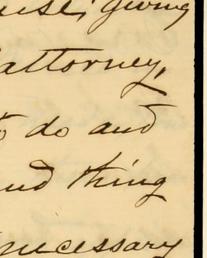 giving
attorney,
to do and
and thing
necessary